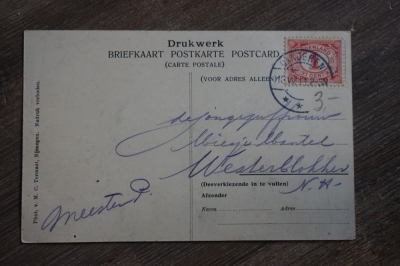 Drukwerk
BRIEFKAART POSTKARTE POSTCARD
(CARTE POSTALE)
(VOOR ADRES ALLEEN)
3.-
de jongejufvrouw
Mantel
Westerblokker
N. H-
(Desverkiezende in te vullen)
Afzender
Naam
Adres
Meester P.
Nadruk verboden.
Nijmegen.